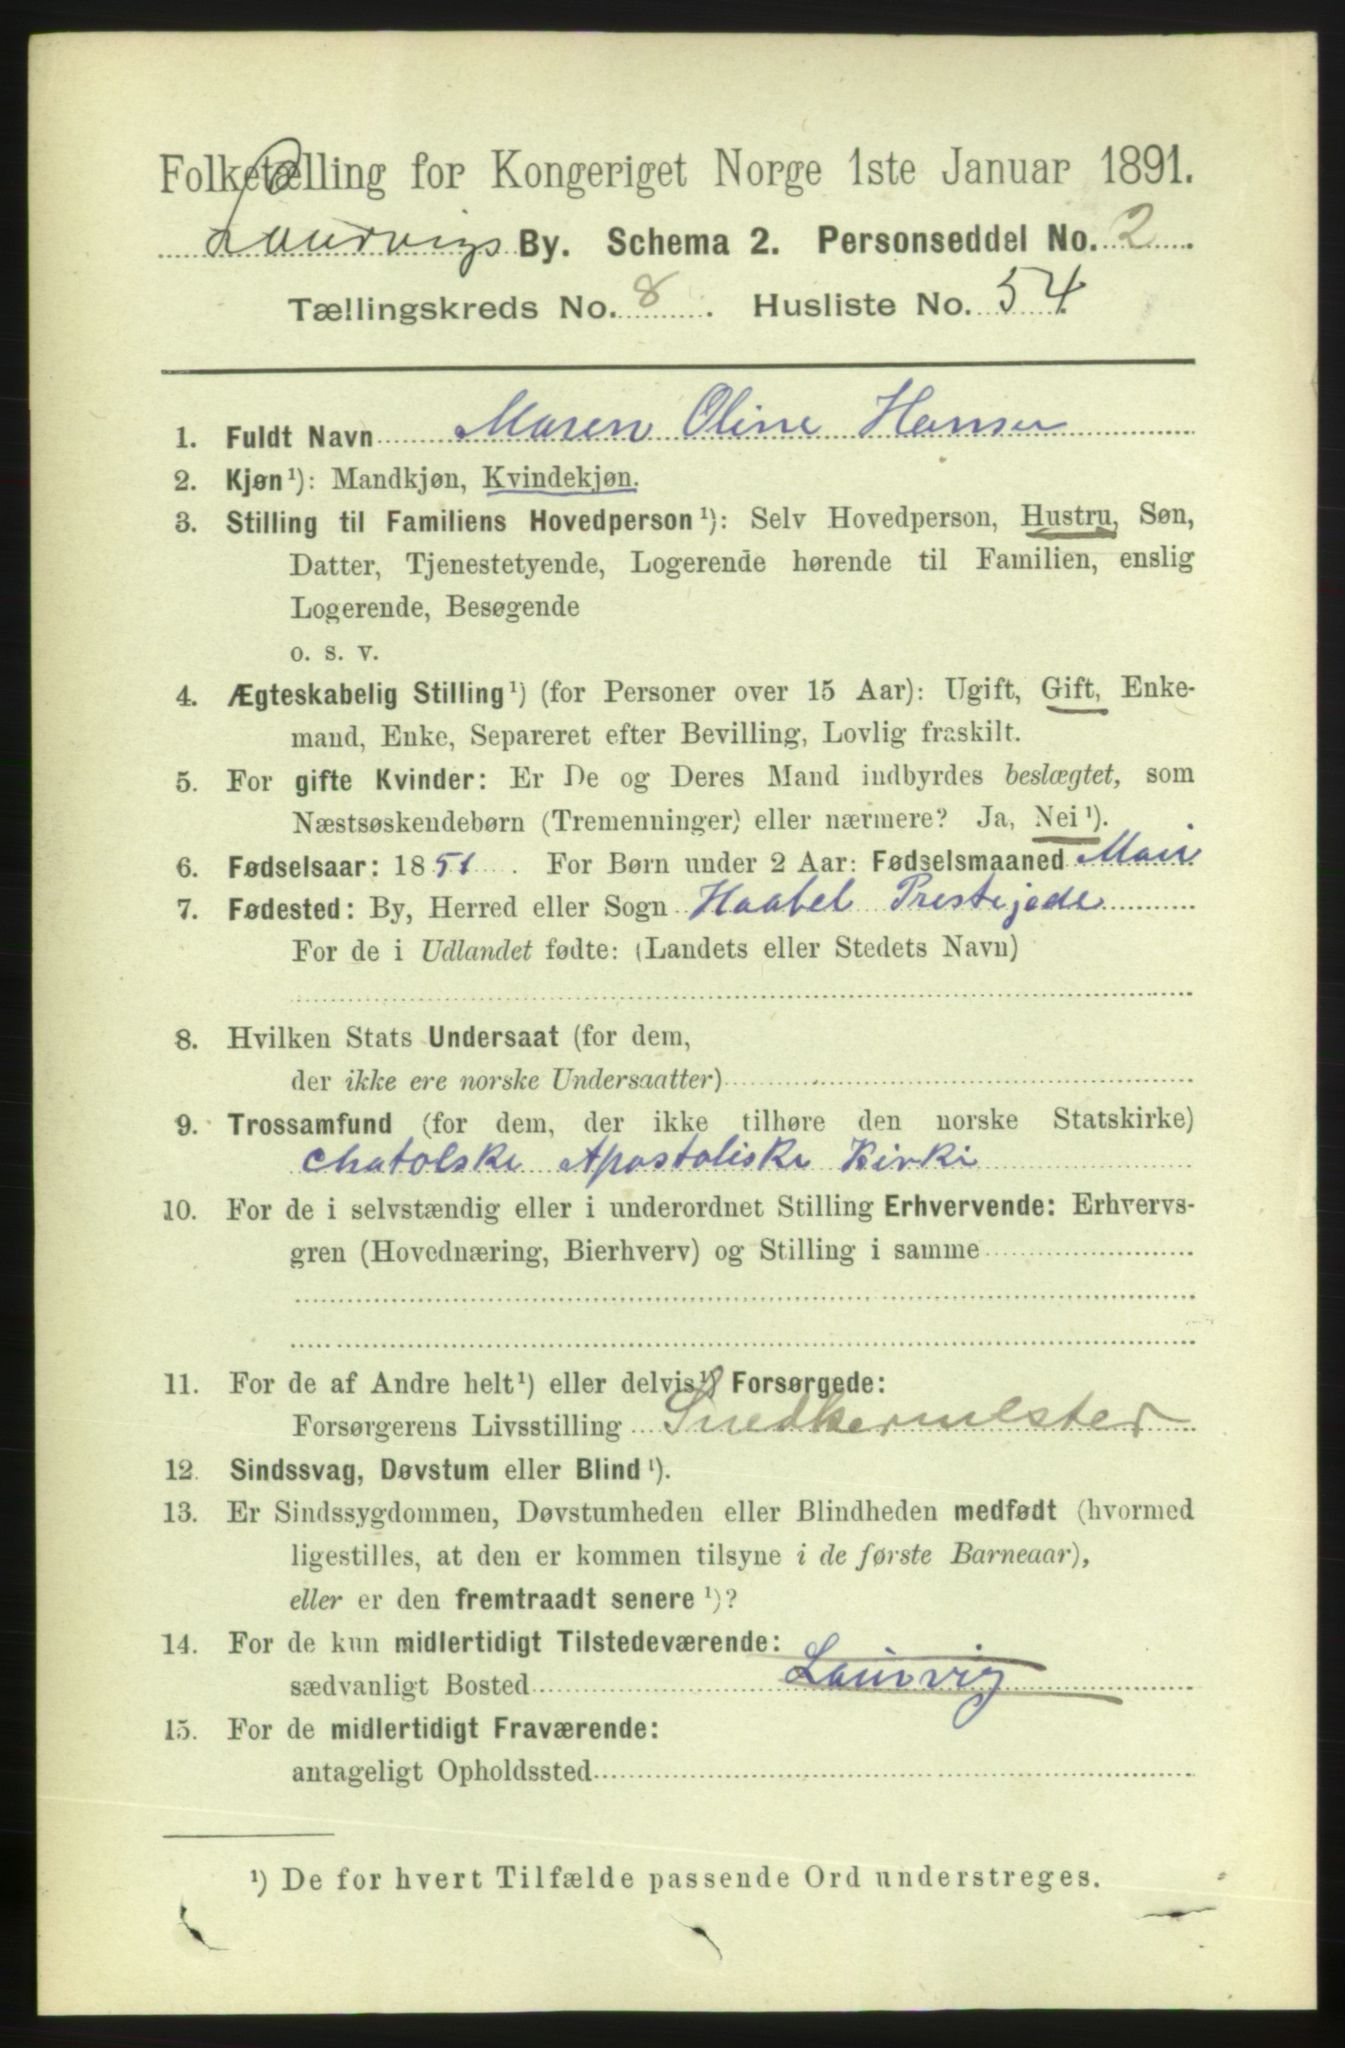 Folketælling for Kongeriget Norge 1ste Januar 1891.
Laurvigs By. Schema 2. Personseddel No. 2
Tællingskreds No. 8. Husliste No. 54
1. Fuldt Navn Maren Oline Hansen
2. Kjøn¹): Mandkjøn, Kvindekjøn.
3. Stilling til Familiens Hovedperson¹): Selv Hovedperson, Hustru, Søn,
Datter, Tjenestetyende, Logerende hørende til Familien, enslig
Logerende, Besøgende
o. s. v.
4. Ægteskabelig Stilling¹) (for Personer over 15 Aar): Ugift, Gift, Enke-
mand, Enke, Separeret efter Bevilling, Lovlig fraskilt.
5. For gifte Kvinder: Er De og Deres Mand indbyrdes beslægtet, som
Næstsøskendebørn (Tremenninger) eller nærmere? Ja, Nei¹).
6. Fødselsaar: 1851. For Børn under 2 Aar: Fødselsmaaned Mai
7. Fødested: By, Herred eller Sogn Haabel Prestejede
For de i Udlandet fødte: (Landets eller Stedets Navn)
8. Hvilken Stats Undersaat (for dem,
der ikke ere norske Undersaatter)
9. Trossamfund (for dem, der ikke tilhøre den norske Statskirke)
chatolske Apostoliske Kirki
10. For de i selvstændig eller i underordnet Stilling Erhvervende: Erhvervs-
gren (Hovednæring, Bierhverv) og Stilling i samme
11. For de af Andre helt¹) eller delvis¹) Forsørgede:
Forsørgerens Livsstilling Snedkermester
12. Sindssvag, Døvstum eller Blind¹).
13. Er Sindssygdommen, Døvstumheden eller Blindheden medfødt (hvormed
ligestilles, at den er kommen tilsyne i de første Barneaar),
eller er den fremtraadt senere¹)?
14. For de kun midlertidigt Tilstedeværende:
sædvanligt Bosted Laurvig
15. For de midlertidigt Fraværende:
antageligt Opholdssted
¹) De for hvert Tilfælde passende Ord understreges.